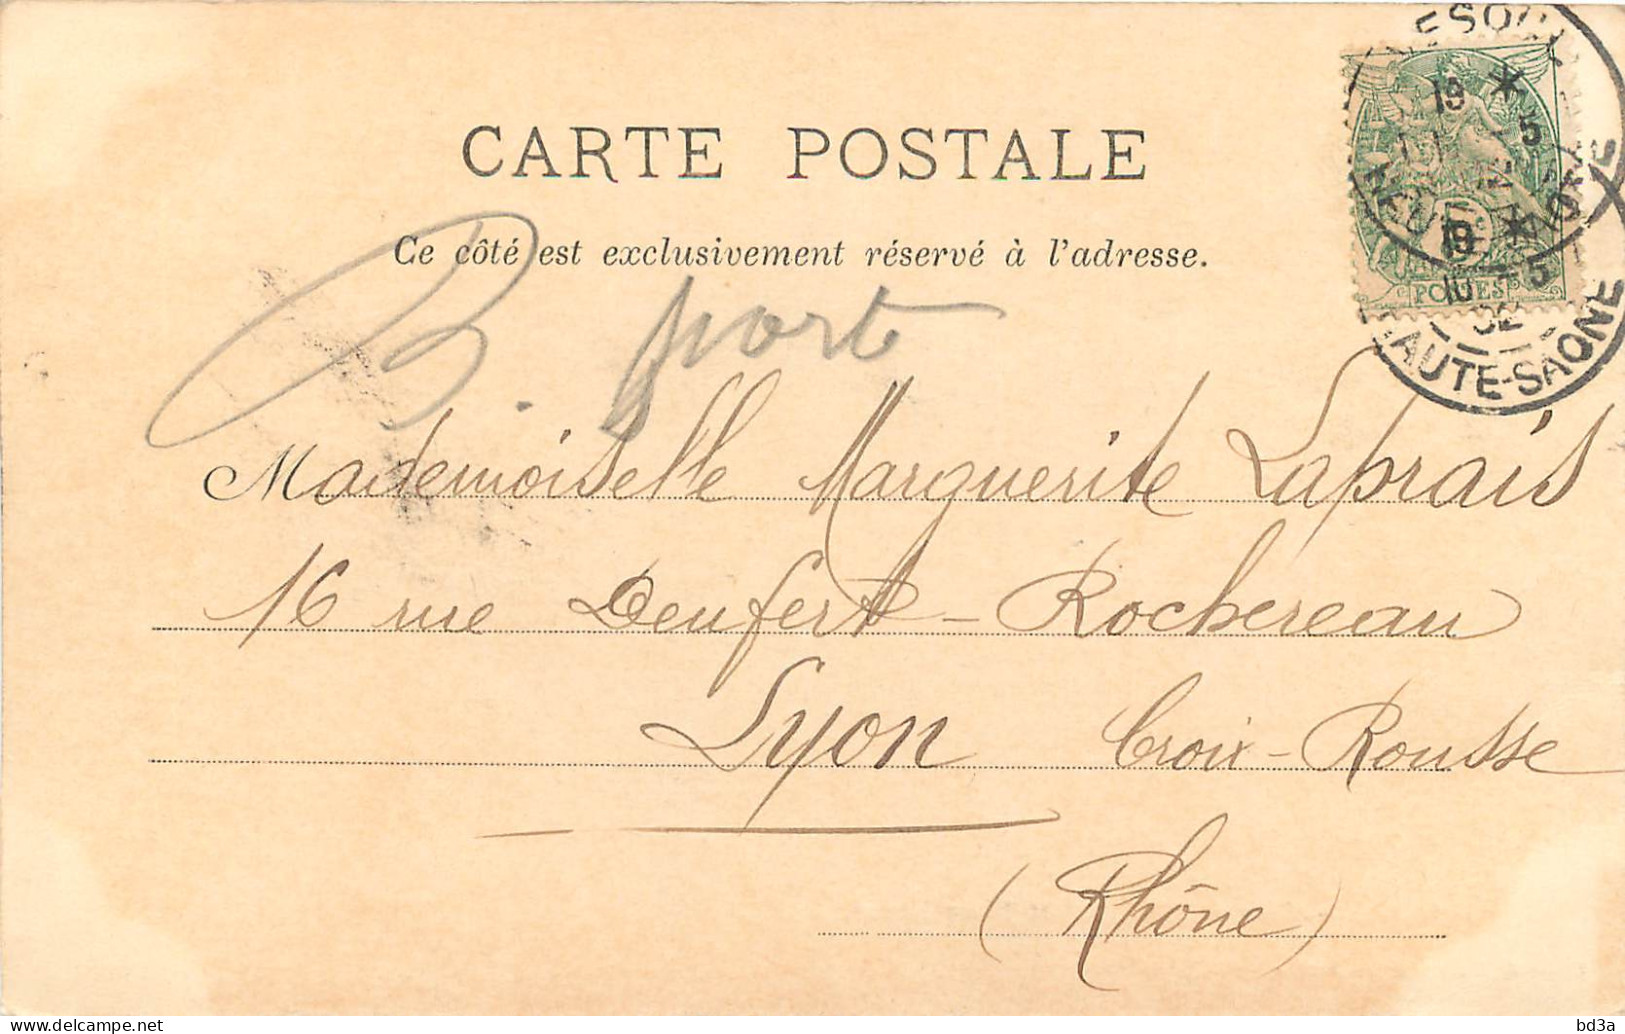 CARTE POSTALE
Ce côté est exclusivement réservé à l'adresse.
B. port
Mademoiselle Marguerite Laprais
16 rue Denfert-Rochereau
Lyon Croix-Rousse
(Rhône)
19
5
19
10 5
02
POSTES
HAUTE-SAONE
bd3a